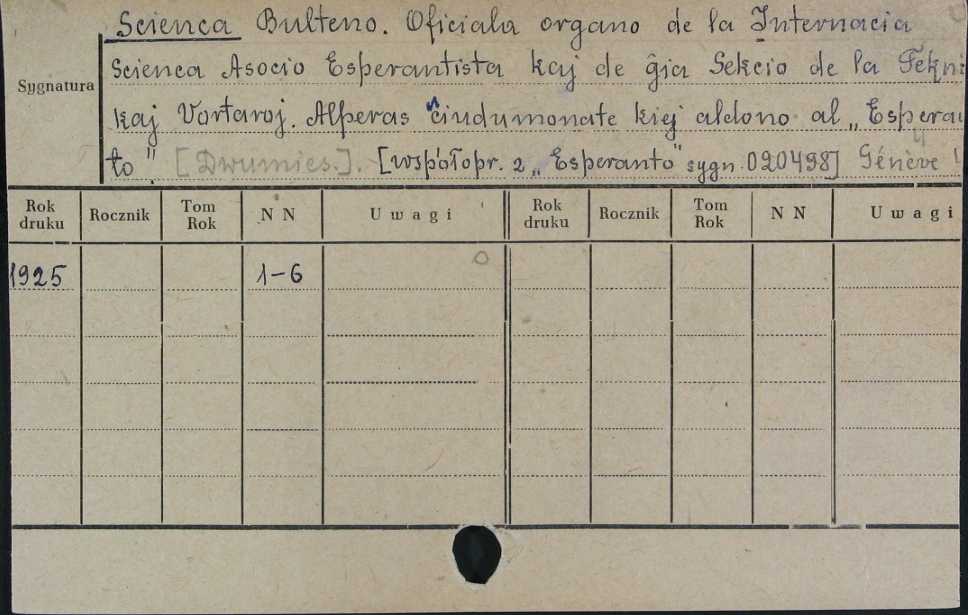 Scienca Bulteno. Oficiala organo de la Internacia
Scienca Asocio Esperantista kaj de ĝia Sekcio de la Tekni
Sygnatura
kaj Vortaroj. Alperas ĉiudumonate kiej aldono al „Espera
to" [Dwumies.]. [współopr. z „Esperanto" sygn. 020498] Génève
Rok druku Rocznik Tom Rok N N Uwagi Rok druku Rocznik Tom Rok N N Uwagi
1925 1-6